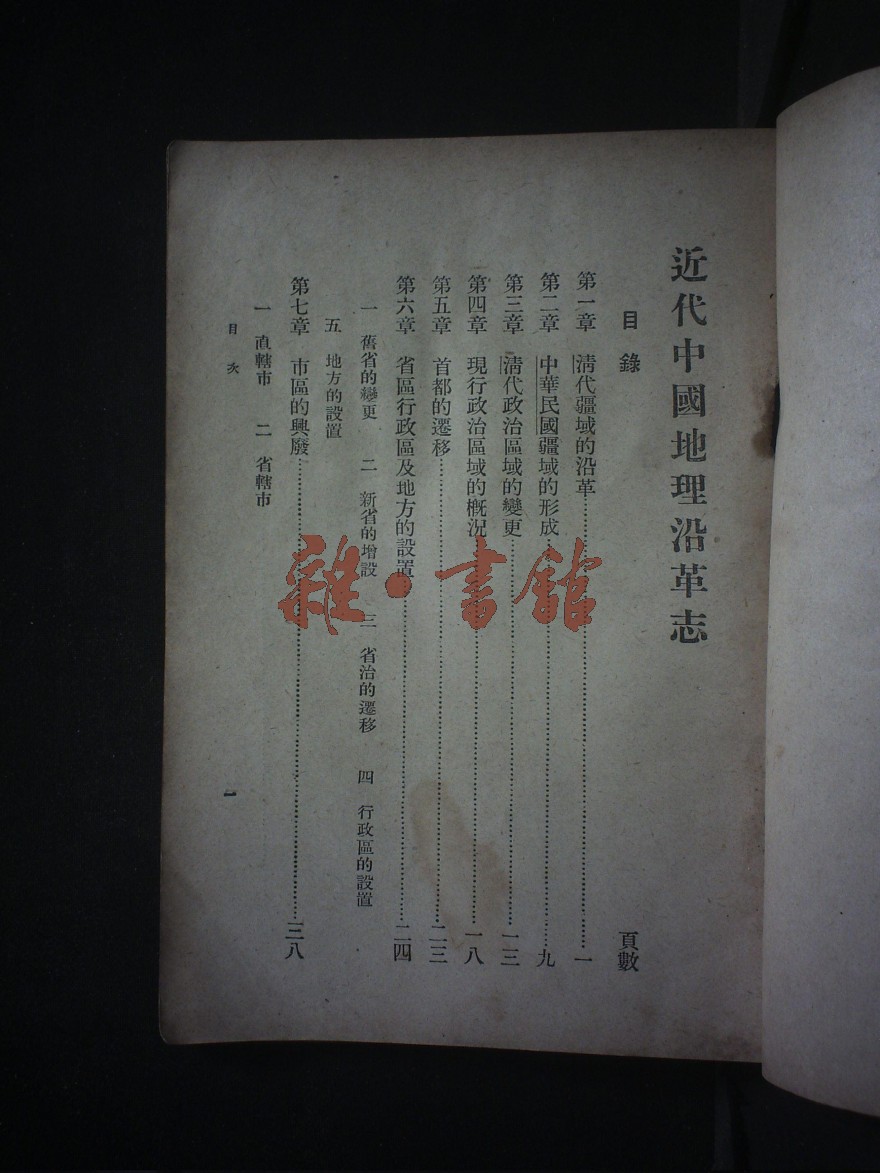 近代中國地理沿革志
目錄 頁數
第一章 清代疆域的沿革……一
第二章 中華民國疆域的形成……九
第三章 清代政治區域的變更……一三
第四章 現行政治區域的概況……一八
第五章 首都的遷移……二三
第六章 省區行政區及地方的設置……二四
一 舊省的變更 二 新省的增設 三 省治的遷移 四 行政區的設置
五 地方的設置
第七章 市區的興廢……三八
一 直轄市 二 省轄市
目次 一
雜·書館